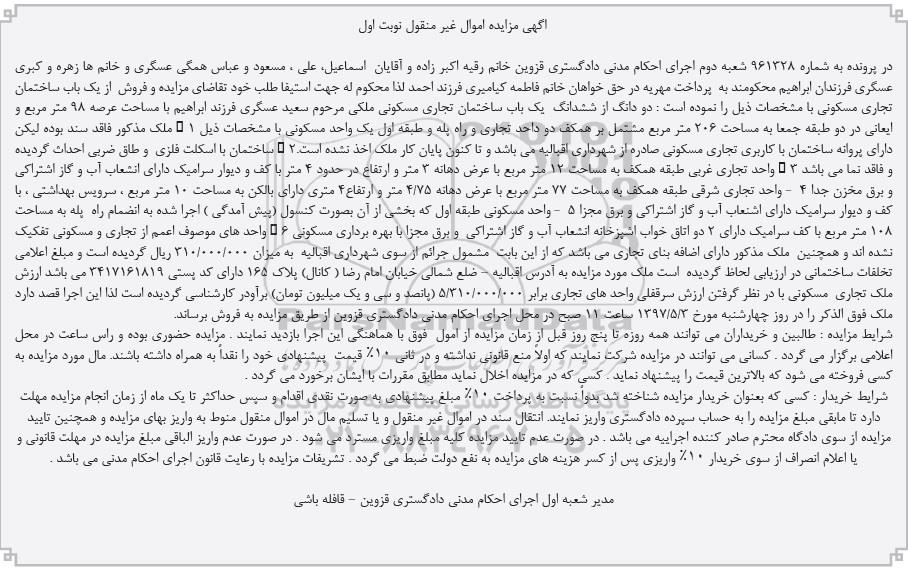 اگهی مزایده اموال غیر منقول نوبت اول
در پرونده به شماره ۹۶۱۳۲۸ شعبه دوم اجرای احکام مدنی دادگستری قزوین خانم رقیه اکبر زاده و آقایان اسماعیل، علی ، مسعود و عباس همگی عسگری و خانم ها زهره و کبری
عسگری فرزندان ابراهیم محکومند به پرداخت مهریه در حق خواهان خانم فاطمه کیامیری فرزند احمد لذا محکوم له جهت استیفا طلب خود تقاضای مزایده و فروش از یک باب ساختمان
تجاری مسکونی با مشخصات ذیل را نموده است : دو دانگ از ششدانگ یک باب ساختمان تجاری مسکونی ملکی مرحوم سعید عسگری فرزند ابراهیم با مساحت عرصه ۹۸ متر مربع و
ایعانی در دو طبقه جمعا به مساحت ۲۰۶ متر مربع مشتمل بر همکف دو داحد تجاری و راه پله و طبقه اول یک واحد مسکونی با مشخصات ذیل ۱ ملک مذکور فاقد سند بوده لیکن
دارای پروانه ساختمان با کاربری تجاری مسکونی صادره از شهرداری اقبالیه می باشد و تا کنون پایان کار ملک اخذ نشده است.۲ ساختمان با اسکلت فلزی و طاق ضربی احداث گردیده
و فاقد نما می باشد ۳ واحد تجاری غربی طبقه همکف به مساحت ۱۲ متر مربع با عرض دهانه ۳ متر و ارتفاع در حدود ۴ متر با کف و دیوار سرامیک دارای انشعاب آب و گاز اشتراکی
و برق مخزن جدا ۴ - واحد تجاری شرقی طبقه همکف به مساحت ۷۷ متر مربع با عرض دهانه ۴/۷۵ متر و ارتفاع۴ متری دارای بالکن به مساحت ۱۰ متر مربع ، سرویس بهداشتی ، با
کف و دیوار سرامیک دارای اشنعاب آب و گاز اشتراکی و برق مجزا ۵ - واحد مسکونی طبقه اول که بخشی از آن بصورت کنسول (پیش آمدگی ) اجرا شده به انضمام راه پله به مساحت
۱۰۸ متر مربع با کف سرامیک دارای ۲ دو اتاق خواب اشپزخانه انشعاب آب و گاز اشتراکی و برق مجزا با بهره برداری مسکونی ۶ واحد های موصوف اعمم از تجاری و مسکونی تفکیک
نشده اند و همچنین ملک مذکور دارای اضافه بنای تجاری می باشد که از این بابت مشمول جرائم از سوی شهرداری اقبالیه به میزان ۳۱۰/۰۰۰/۰۰۰ ریال گردیده است و مبلغ اعلامی
تخلفات ساختمانی در ارزیابی لحاظ گردیده است ملک مورد مزایده به آدرس اقبالیه – ضلع شمالی خیابان امام رضا ( کانال) پلاک ۱۶۵ دارای کد پستی ۳۴۱۷۱۶۱۸۱۹ می باشد ارزش
ملک تجاری مسکونی با در نظر گرفتن ارزش سرقفلی واحد های تجاری برابر ۵/۳۱۰/۰۰۰/۰۰۰ (پانصد و سی و یک میلیون تومان) برآودر کارشناسی گردیده است لذا این اجرا قصد دارد
ملک فوق الذکر را در روز چهارشنبه مورخ ۱۳۹۷/۵/۳ ساعت ۱۱ صبح در محل اجرای احکام مدنی دادگستری قزوین از طریق مزایده به فروش برساند.
شرایط مزایده : طالبین و خریداران می توانند همه روزه تا پنج روز قبل از زمان مزایده از امول فوق با هماهنگی این اجرا بازدید نمایند . مزایده حضوری بوده و راس ساعت در محل
اعلامی برگزار می گردد . کسانی می توانند در مزایده شرکت نمایند که اولاً منع قانونی نداشته و در ثانی ۱۰٪ قیمت پیشنهادی خود را نقداً به همراه داشته باشند. مال مورد مزایده به
کسی فروخته می شود که بالاترین قیمت را پیشنهاد نماید . کسی که در مزایده اخلال نماید مطابق مقررات با ایشان برخورد می گردد .
شرایط خریدار : کسی که بعنوان خریدار مزایده شناخته شد بدواً نسبت به پرداخت ۱۰٪ مبلغ پیشنهادی به صورت نقدی اقدام و سپس حداکثر تا یک ماه از زمان انجام مزایده مهلت
دارد تا مابقی مبلغ مزایده را به حساب سپرده دادگستری واریز نمایند. انتقال سند در اموال غیر منقول و یا تسلیم مال در اموال منقول منوط به واریز بهای مزایده و همچنین تایید
مزایده از سوی دادگاه محترم صادر کننده اجراییه می باشد . در صورت عدم تایید مزایده کلیه مبلغ واریزی مسترد می شود . در صورت عدم واریز الباقی مبلغ مزایده در مهلت قانونی و
یا اعلام انصراف از سوی خریدار ۱۰٪ واریزی پس از کسر هزینه های مزایده به نفع دولت ضبط می گردد . تشریفات مزایده با رعایت قانون اجرای احکام مدنی می باشد .
مدیر شعبه اول اجرای احکام مدنی دادگستری قزوین – قافله باشی